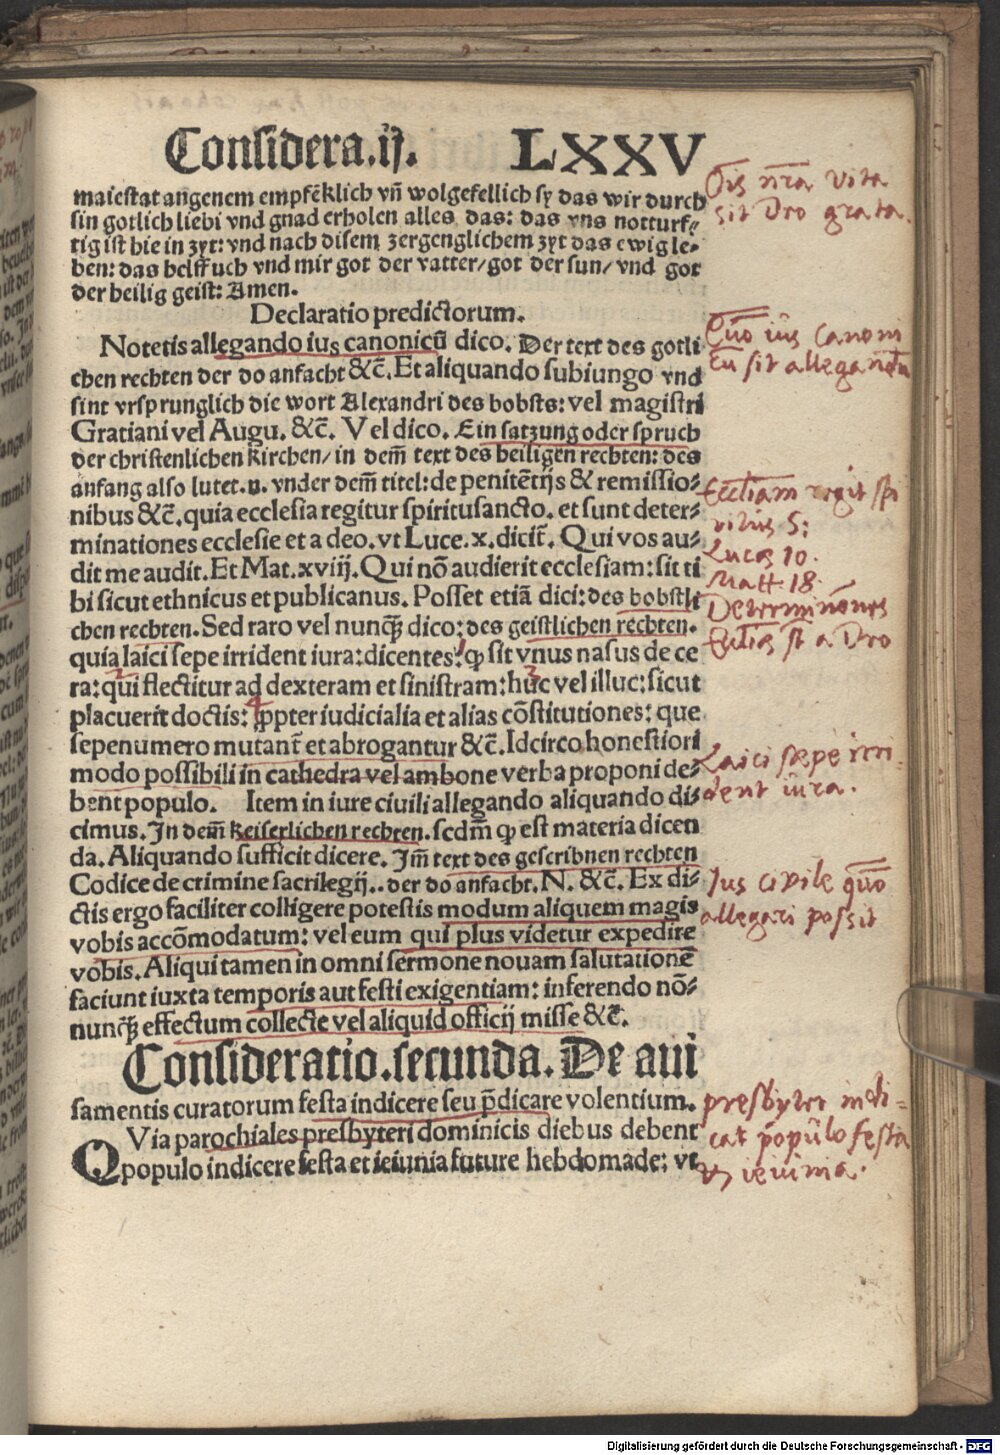 Considera.ij. LXXV
maiestat angenem empfēklich vñ wolgefellich sy das wir durch
sin gotlich liebi vnd gnad erholen alles das: das vns notturf⸗
tig ist hie in zyt: vnd nach disem zergenglichem zyt das ewig le⸗
ben: das helff uch vnd mir got der vatter/ got der sun/ vnd got
der heilig geist: Amen.
Declaratio predictorum.
Notetis allegando ius canonicū dico. Der text des gotli
chen rechten der do anfacht &c̄. Et aliquando subiungo vnd
sint vrsprunglich die wort Alexandri des bobsts: vel magistri
Gratiani vel Augu. &c̄. Vel dico. Ein satzung oder spruch
der christenlichen kirchen/ in dem̄ text des heiligen rechten: des
anfang also lutet. n. vnder dem̄ titel: de penitētijs & remissio⸗
nibus &c̄. quia ecclesia regitur spiritusancto. et sunt deter⸗
minationes ecclesie et a deo. vt Luce. x. dicit̄. Qui vos au⸗
dit me audit. Et Mat. xviij. Qui nō audierit ecclesiam: sit ti
bi sicut ethnicus et publicanus. Posset etiā dici: des bobstli
chen rechten. Sed raro vel nunqꝫ dico: des geistlichen rechten.
quia laici sepe irrident iura: dicentes: ꝙ sit vnus nasus de ce
ra: qui flectitur ad dexteram et sinistram: huc vel illuc: sicut
placuerit doctis: ꝓpter iudicialia et alias cōstitutiones: que
sepenumero mutant̄ et abrogantur &c̄. Idcirco honestiori
modo possibili in cathedra vel ambone verba proponi de⸗
bent populo. Item in iure ciuili allegando aliquando di⸗
cimus. In dem̄ keiserlichen rechten. scdm̄ ꝙ est materia dicen
da. Aliquando sufficit dicere. Im̄ text des geschribnen rechten
Codice de crimine sacrilegij.. der do anfacht. N. &c̄. Ex di⸗
ctis ergo faciliter colligere potestis modum aliquem magis
vobis accōmodatum: vel eum qui plus videtur expedire
vobis. Aliqui tamen in omni sermone nouam salutationē
faciunt iuxta temporis aut festi exigentiam: inferendo nō⸗
nunqꝫ effectum collecte vel aliquid officij misse &c̄.
Consideratio. secunda. De aui
samentis curatorum festa indicere seu p̄dicare volentium.
QVia parochiales presbyteri dominicis diebus debent
populo indicere festa et ieiunia future hebdomade: vt
nr̄a vita
sit Deo grata.
Quō iūs canoni
cū sit allegandū
Eccl̄iam regit spi
ritus S:
Lucas 10.
Matt. 18.
Determin̄ones
Eccl̄iæ st̄ a Deo
Laici sæpe irri⸗
dent iura.
Jus civile quō
allegari possit
presbyteri indi⸗
cāt populo festa
et ieiunia.
Digitalisierung gefördert durch die Deutsche Forschungsgemeinschaft - DFG